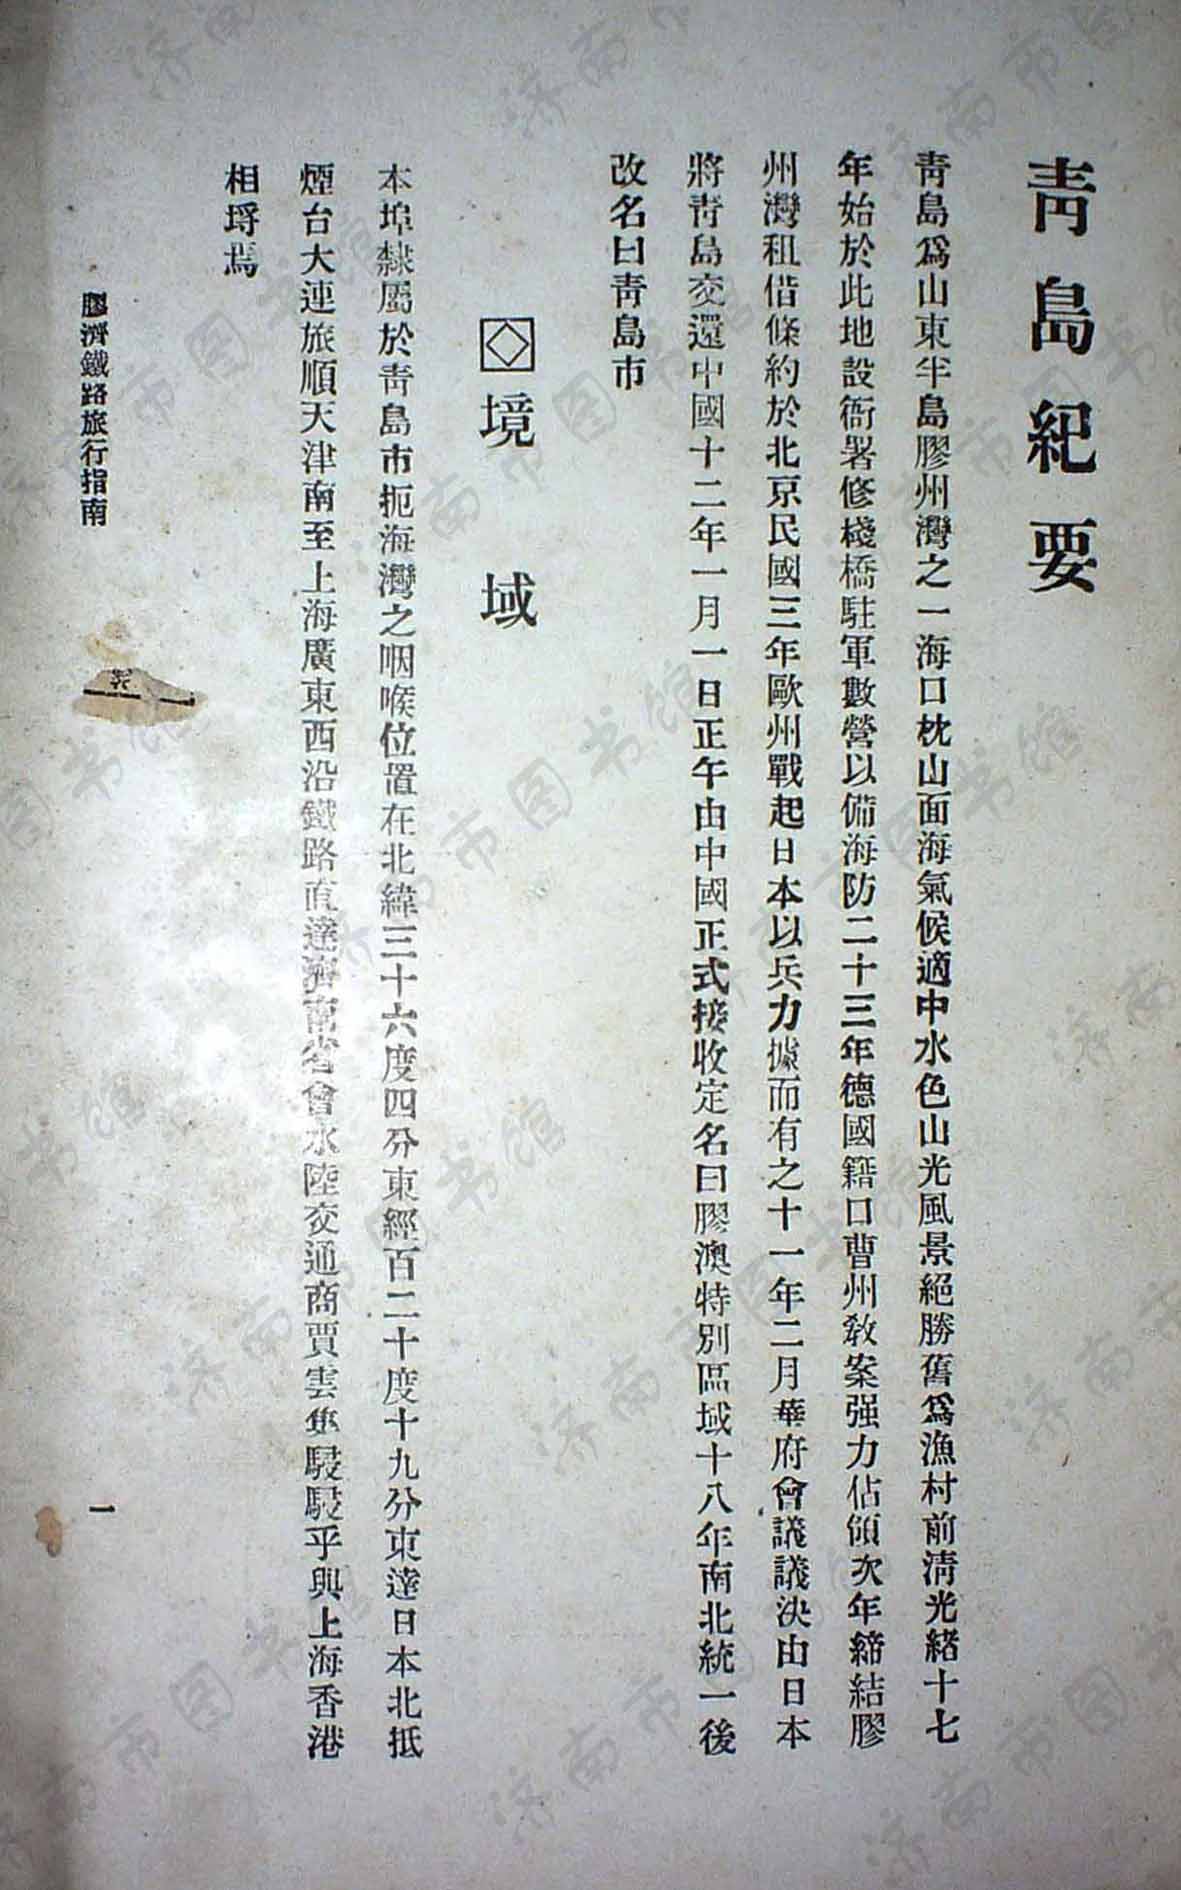 靑島紀要
靑島爲山東半島膠州灣之一海口枕山面海氣候適中水色山光風景絕勝舊爲漁村前淸光緒十七
年始於此地設衙署修棧橋駐軍數營以備海防二十三年德國籍口曹州敎案强力佔領次年締結膠
州灣租借條約於北京民國三年歐州戰起日本以兵力據而有之十一年二月華府會議議決由日本
將靑島交還中國十二年一月一日正午由中國正式接收定名曰膠澳特別區域十八年南北統一後
改名曰靑島市
境域
本埠隸屬於靑島市扼海灣之咽喉位置在北緯三十六度四分東經百二十度十九分東達日本北抵
煙台大連旅順天津南至上海廣東西沿鐵路直達濟南省會水陸交通商賈雲集駸駸乎與上海香港
相埒焉
膠濟鐵路旅行指南
一
济南市图书馆